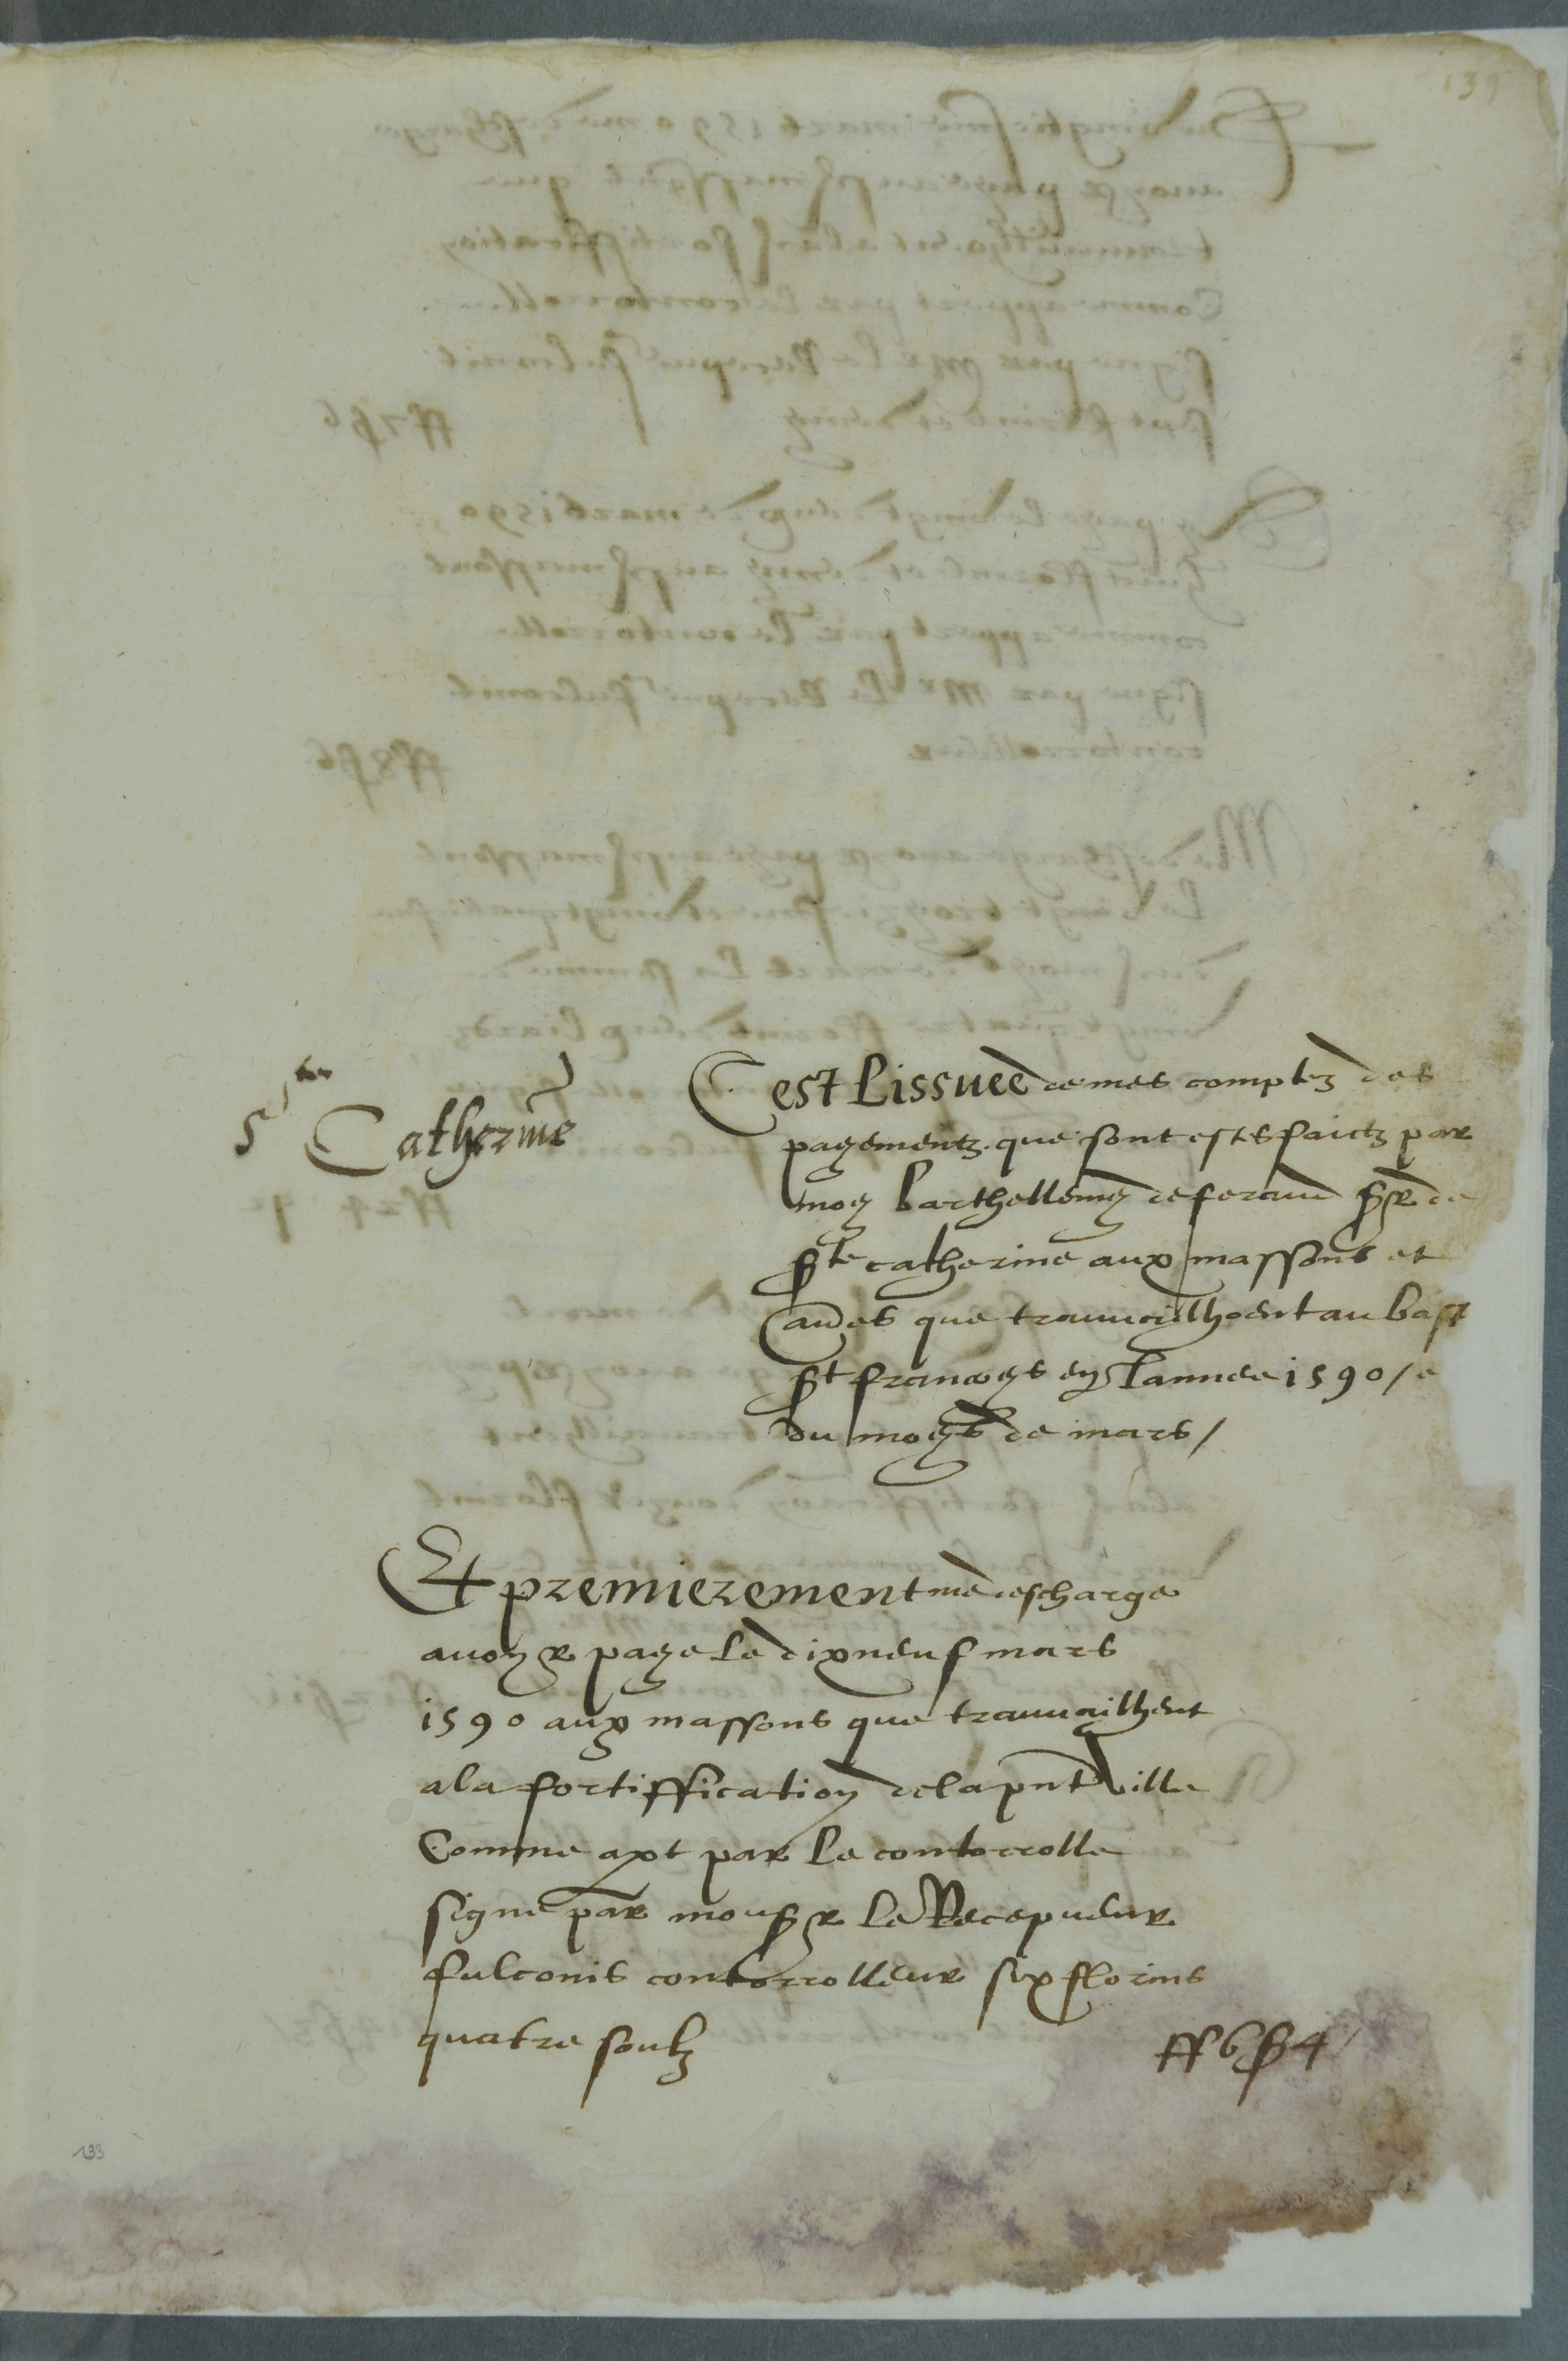 139
Ste Catherine
Cest Lissuee de mes comptz des
payementz que sont estes faictz par
moy barthellemy de feraud sgr de
ste catherine aux massons et
aues que travvaylhoent au bast
st francoys en Lannee 1590 / e
du moys de mars /
Et premierement me descharge
avoyr paye Le dixneuf mars
1590 aux massons que travvaylhent
a la fortiffication de la pnt ville
Comme apt par Le contorrolle
signe par monsgr Le Recepveur
fulconis contorrolleur six florins
quatre soulz
ff 6 s 4
133